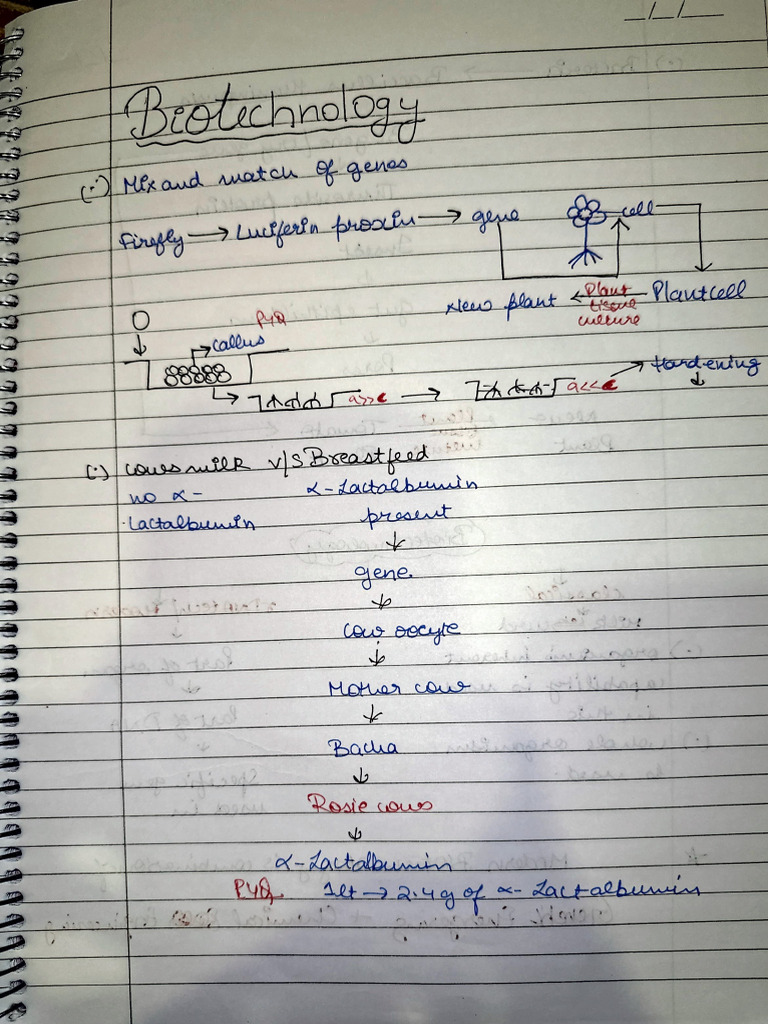 __/__/____
Biotechnology
(·) Mix and match of genes
Firefly → Luciferin protein → gene cell
New plant ← Plant tissue culture Plant cell
PYQ
callus
a>>c → a<<c Hardening
(·) cows milk v/s Breastfeed
no α- α-Lactalbumin
Lactalbumin present
↓
gene
↓
Cow oocyte
↓
Mother cow
↓
Bacha
↓
Rosie cows
↓
α-Lactalbumin
PYQ 1lt → 2.4g of α-Lactalbumin